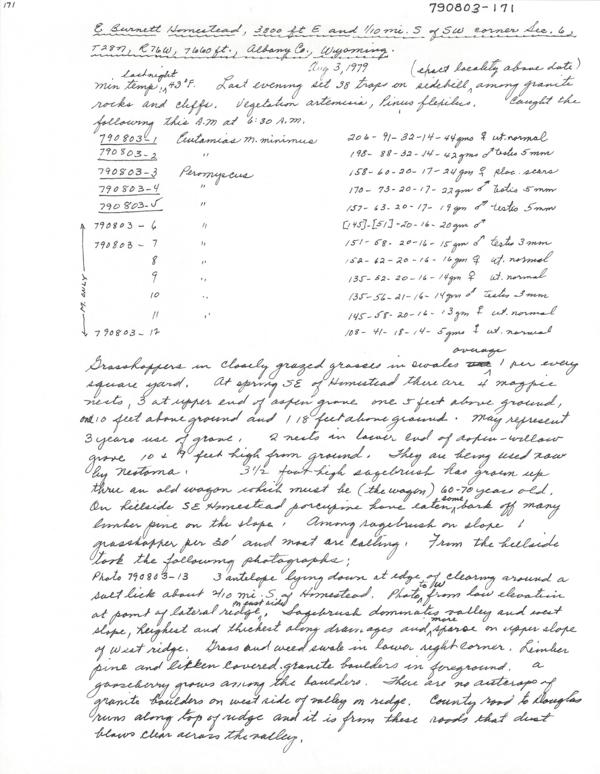 171
790803-171
E Burnett Homestead, 3800 ft E and 1/10 mi. S of SW corner Sec. 6,
T28N, R76W, 7660 ft., Albany Co., Wyoming.
Aug 3, 1979 (exact locality above date)
last night
min temp. 43°F. Last evening set 38 traps on sidehill, among granite
rocks and cliffs. Vegetation artemisia, Pinus flexilus. Caught the
following this A.M at 6:30 A.M.
790803-1 Eutamias m. minimus 206-91-32-14-44gms ♀ ut. normal
790803-2 " 198-88-32-14-42gms ♂ testis 5mm
790803-3 Peromyscus 158-60-20-17-24gm ♀ plac. scars
790803-4 " 170-73-20-17-22gm ♂ testis 5mm
790803-5 " 157-63-20-17-19gm ♂ testis 5mm
790803-6 " [145]-[51]-20-16-20gm ♂
790803-7 " 151-58-20-16-15gm ♂ testis 3mm
8 " 152-62-20-16-16gm ♀ ut. normal
9 " 135-52-20-16-14gm ♀ ut. normal
10 " 135-56-21-16-14gm ♂ testes 3mm
11 " 145-58-20-16-13gm ♀ ut. normal
790803-12 108-41-18-14-5gms ♀ ut. normal
M. ONLY
average
Grasshoppers in closely grazed grasses in swales 1 per every
square yard. At spring SE of Homestead there are 4 magpie
nests, 3 at upper end of aspen grove one 5 feet above ground,
one 10 feet above ground and 1 18 feet above ground. May represent
3 years use of grove. 2 nests in lower end of aspen-willow
grove 10 & 9 feet high from ground. They are being used now
by Neotoma. 3 1/2 foot high sagebrush has grown up
thru an old wagon which must be (the wagon) 60-70 years old.
On hillside SE Homestead porcupine have eaten some bark off many
limber pine on the slope. Among sagebrush on slope 1
grasshopper per 20' and most are calling. From the hillside
took the following photographs:
Photo 790803-13 3 antelope lying down at edge of clearing around a
salt lick about 2/10 mi. S. of Homestead. Photo, to W from low elevation
at point of lateral ridge, on east side. Sagebrush dominates valley and west
slope, heighest and thickest along drainages and more sparse on upper slope
of West ridge. Grass and weed swale in lower right corner. Limber
pine and lichen covered granite boulders in foreground. A
gooseberry grows among the boulders. There are no outcrops of
granite boulders on west side of valley on ridge. County road to Douglas
runs along top of ridge and it is from these roads that dust
blows clear across the valley.